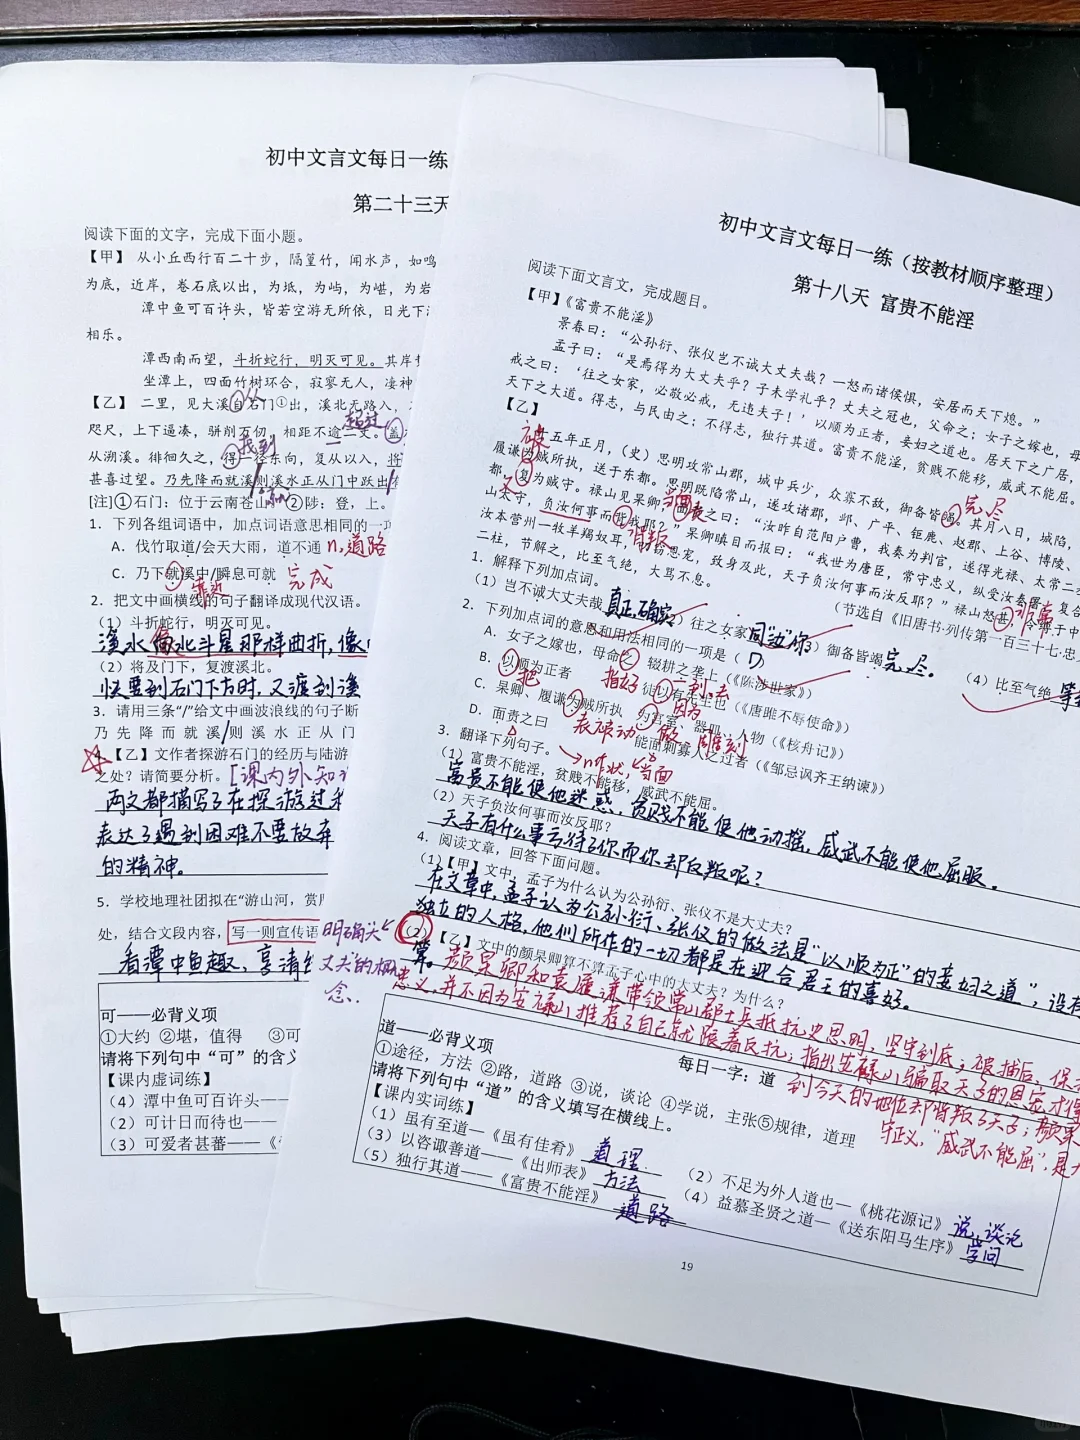 初中文言文每日一练
第二十三天
阅读下面的文字，完成下面小题。
【甲】 从小丘西行百二十步，隔篁竹，闻水声，如鸣
为底，近岸，卷石底以出，为坻，为屿，为嵁，为岩
潭中鱼可百许头，皆若空游无所依，日光下
相乐。
潭西南而望，斗折蛇行，明灭可见。其岸
坐潭上，四面竹树环合，寂寥无人，凄神
【乙】 二里，见大溪自石门①出，溪北无路入，
从
超过
咫尺，上下逼凑，骈削万仞，相距不逾二丈。盖
找到
从溯溪。徘徊久之，得一径东向，复从以入，将
甚喜过望。乃先降而就溪/则溪水正从门中跃出
[注]①石门：位于云南苍山 ②陟：登，上。
1. 下列各组词语中，加点词语意思相同的一项
A. 伐竹取道/会天大雨，道不通 n.道路
C. 乃下就溪中/瞬息可就 完成
靠近
2. 把文中画横线的句子翻译成现代汉语。
（1）斗折蛇行，明灭可见。
溪水像北斗星那样曲折，像
（2）将及门下，复渡溪北。
快要到石门下方时，又渡到溪
3. 请用三条“/”给文中画波浪线的句子断
乃先降而就溪/则溪水正从门
【乙】文作者探游石门的经历与陆游
之处？请简要分析。[课内外知
两文都描写了在探游过
表达了遇到困难不要放弃
的精神。
5. 学校地理社团拟在“游山河，赏
处，结合文段内容，写一则宣传语
看潭中鱼趣，享清
可——必背义项
①大约 ②堪，值得 ③可
请将下列句中“可”的含义
【课内虚词练】
（4）潭中鱼可百许头——
（2）可计日而待也——
（3）可爱者甚蕃——《
初中文言文每日一练（按教材顺序整理）
第十八天 富贵不能淫
阅读下面文言文，完成题目。
【甲】《富贵不能淫》
景春曰：“公孙衍、张仪岂不诚大丈夫哉？一怒而诸侯惧，安居而天下熄。”
孟子曰：“是焉得为大丈夫乎？子未学礼乎？丈夫之冠也，父命之；女子之嫁也，母
戒之曰：‘往之女家，必敬必戒，无违夫子！’以顺为正者，妾妇之道也。居天下之广居，
天下之大道。得志，与民由之；不得志，独行其道。富贵不能淫，贫贱不能移，威武不能屈。
【乙】
被
十五年正月，（史）思明攻常山郡，城中兵少，众寡不敌，御备皆竭。其月八日，城陷，
完，尽
履谦为贼所执，送于东都。思明既陷常山，遂攻诸郡，邺、广平、钜鹿、赵郡、上谷、博陵、
都，复为贼守。禄山见杲卿，面责之曰：“汝昨自范阳户曹，我奏为判官，遂得光禄、太常二
又
当面
山太守，负汝何事而背我耶？”杲卿瞋目而报曰：“我世为唐臣，常守忠义，纵受汝奏署，复合
背叛
汝本营州一牧羊羯奴耳，叨窃恩宠，致身及此，天子负汝何事而汝反耶？”禄山怒甚，令缚于中
非常
二柱，节解之，比至气绝，大骂不息。
（节选自《旧唐书·列传第一百三十七·忠
1. 解释下列加点词。
（1）岂不诚大丈夫哉 真正，确实 （2）往之女家 同“汝”你 （3）御备皆竭 完，尽。 （4）比至气绝 等
2. 下列加点词的意思和用法相同的一项是（ D ）
A. 女子之嫁也，母命之 辍耕之垄上（《陈涉世家》）
B. 以顺为正者 徒以有先生也（《唐雎不辱使命》）
把 因为
C. 杲卿、履谦为贼所执 为宫室、器皿、人物（《核舟记》）
表被动 做，雕刻
D. 面责之曰 能面刺寡人之过者（《邹忌讽齐王纳谏》）
当面
3. 翻译下列句子。
（1）富贵不能淫，贫贱不能移，威武不能屈。
富贵不能使他迷惑，贫贱不能使他动摇，威武不能使他屈服。
（2）天子负汝何事而汝反耶？
天子有什么事亏待了你而你却反叛呢？
4. 阅读文章，回答下面问题。
（1）【甲】文中，孟子为什么认为公孙衍、张仪不是大丈夫？
在文章中，孟子认为公孙衍、张仪的做法是“以顺为正”的妾妇之道”，没有
独立的人格，他们所作的一切都是在迎合君王的喜好。
明确关
丈夫”的概
念.
（2）【乙】文中的颜杲卿算不算孟子心中的大丈夫？为什么？
算。颜杲卿和袁履谦带领常山郡士兵抵抗史思明，坚守到底；被捕后，保
忠义，并不因为安禄山推荐了自己就跟着反抗；指出安禄山骗取天子的恩宠才
到今天的地位却背叛了天子；颜杲
守正义，“威武不能屈”，是大
道——必背义项
每日一字：道
①途径，方法 ②路，道路 ③说，谈论 ④学说，主张⑤规律，道理
请将下列句中“道”的含义填写在横线上。
【课内实词练】
（1）虽有至道——《虽有佳肴》 道理. （2）不足为外人道也—《桃花源记》 说，谈论
（3）以咨诹善道——《出师表》 方法 （4）益慕圣贤之道—《送东阳马生序》 学问
（5）独行其道——《富贵不能淫》 道路
19